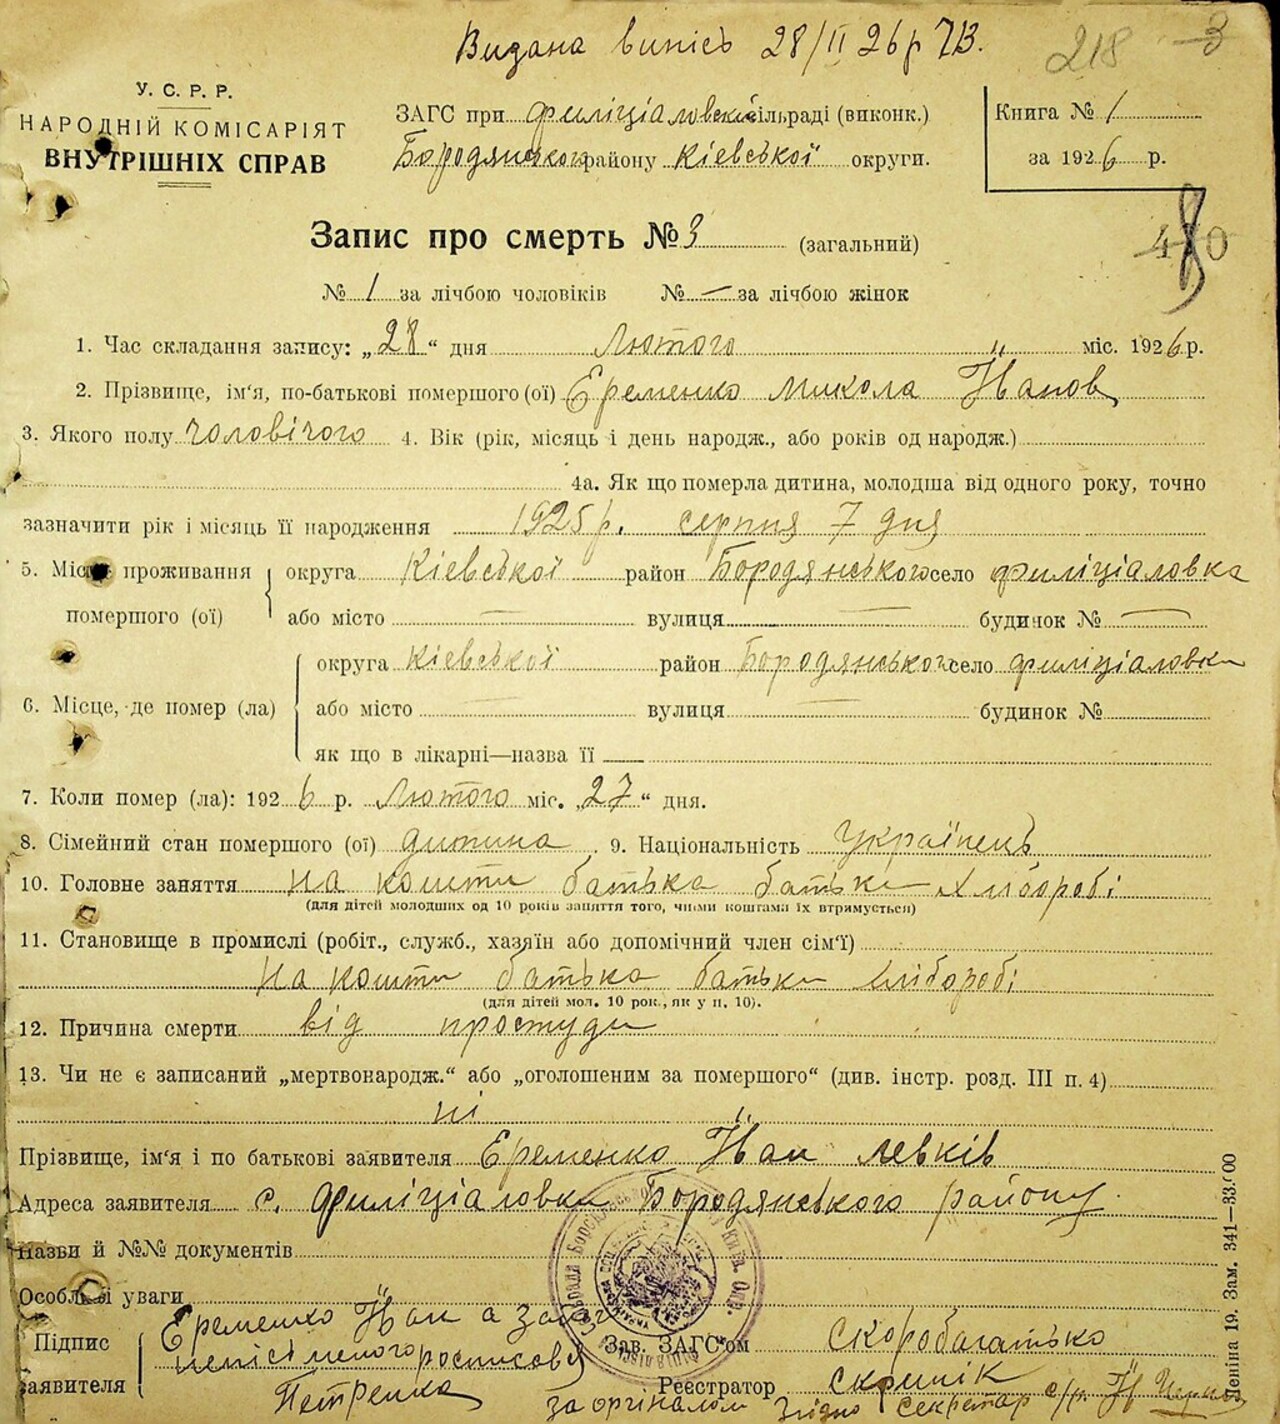 Видана випісь 28/II 26 р
218 3
У. С. Р. Р.
НАРОДНІЙ КОМІСАРІЯТ
ВНУТРІШНІХ СПРАВ
ЗАГС при Филіціаловскій сільраді (виконк.)
Бородянського району Кієвської округи.
Книга № 1
за 1926 р.
Запис про смерть № 3 (загальний)
480
№ 1 за лічбою чоловіків № — за лічбою жінок
1. Час складання запису: „28“ дня Лютого міс. 1926 р.
2. Прізвище, ім‘я, по-батькові помершого (ої) Єременко Микола Іванов
3. Якого полу чоловічого 4. Вік (рік, місяць і день народж., або років од народж.)
4а. Як що померла дитина, молодша від одного року, точно
зазначити рік і місяць її народження 1925 р. серпня 7 дня
5. Місце проживання помершого (ої)
округа Кієвської район Бородянського село Филіціаловка
або місто — вулиця — будинок № —
6. Місце, де помер (ла)
округа Кієвської район Бородянського село Филіціаловки
або місто — вулиця — будинок №
як що в лікарні—назва її
7. Коли помер (ла): 1926 р. Лютого міс. „27“ дня.
8. Сімейний стан помершого (ої) дитина 9. Національність Українець
10. Головне заняття на кошти батька батьки хлібороби
(для дітей молодших од 10 років заняття того, чиїми коштами їх втримується)
11. Становище в промислі (робіт., служб., хазяїн або допомічний член сім‘ї)
на кошти батька батьки хлібороби
(для дітей мол. 10 рок., як у п. 10).
12. Причина смерти від простуди
13. Чи не є записаний „мертвонародж.“ або „оголошеним за помершого“ (див. інстр. розд. III п. 4)
ні
Прізвище, ім‘я і по батькові заявителя Єременко Іван Левків
Адреса заявителя с. Филіціаловки Бородянського району
Назви й №№ документів
Особливі уваги
Підпис заявителя
Єременко Іван а за його
неписьменого росписовся
Петренко
Зав. ЗАГС‘ом Скоробагатько
Реєстратор Скрипік
за оргіналом Згідно Секретар с/р
Леніна 19. Зам. 341—33.000